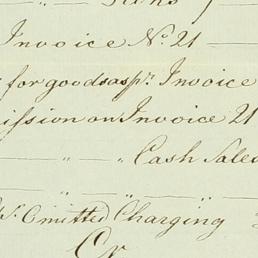 Invoice No. 21
for goods as pr. Invoice
mission on Invoice 21
" " Cash Sales
" " "
Omitted Charging
Cr